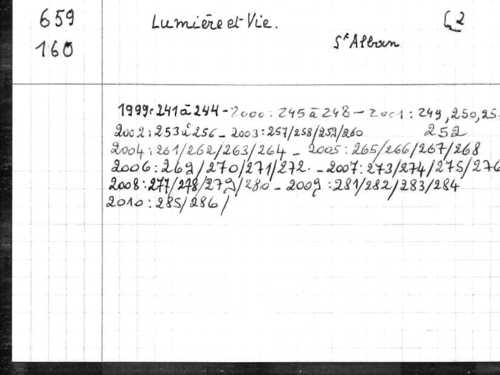 659 Lumière et Vie. G2
160 St Alban
1999: 241 à 244 - 2000: 245 à 248 - 2001: 249, 250, 25
2002: 253 à 256 - 2003: 257/258/259/260 252
2004: 261/262/263/264 - 2005: 265/266/267/268
2006: 269/270/271/272 - 2007: 273/274/275/276
2008: 277/278/279/280 - 2009: 281/282/283/284
2010: 285/286/